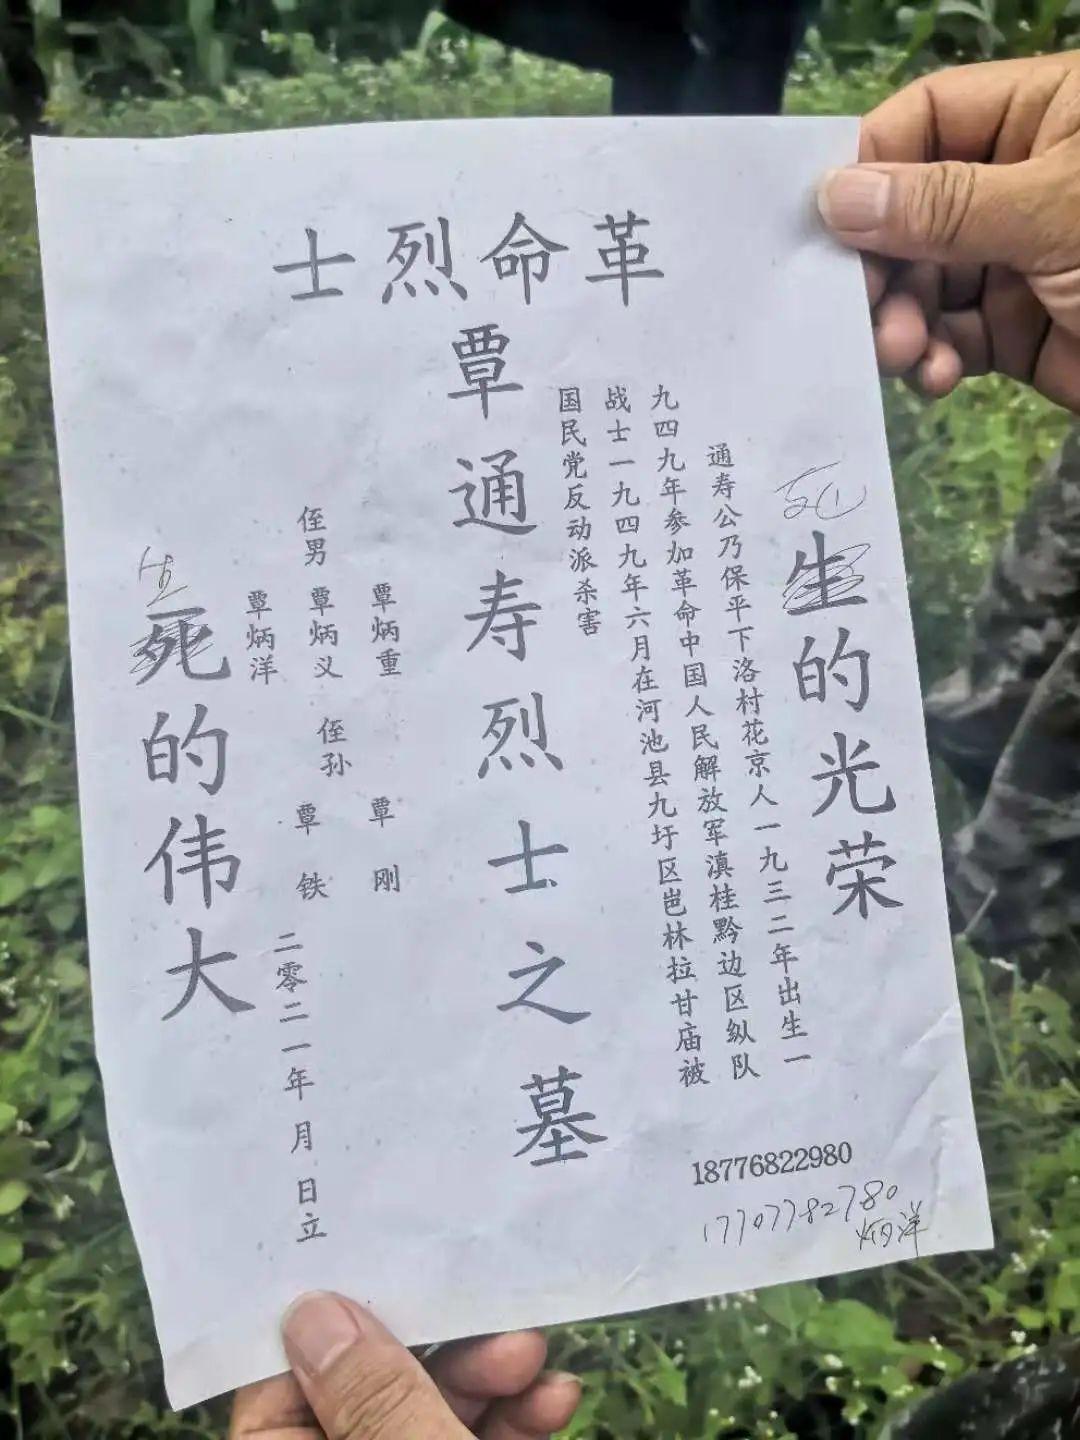 革命烈士
死
生的光荣
通寿公乃保平下洛村花京人一九三二年出生一
九四九年参加革命中国人民解放军滇桂黔边区纵队
战士一九四九年六月在河池县九圩区岜林拉甘庙被
国民党反动派杀害
覃通寿烈士之墓
侄男
覃炳重
覃炳义
覃炳洋
侄孙
覃刚
覃铁
二零二一年 月 日立
生
死的伟大
18776822980
17707782780
炳洋